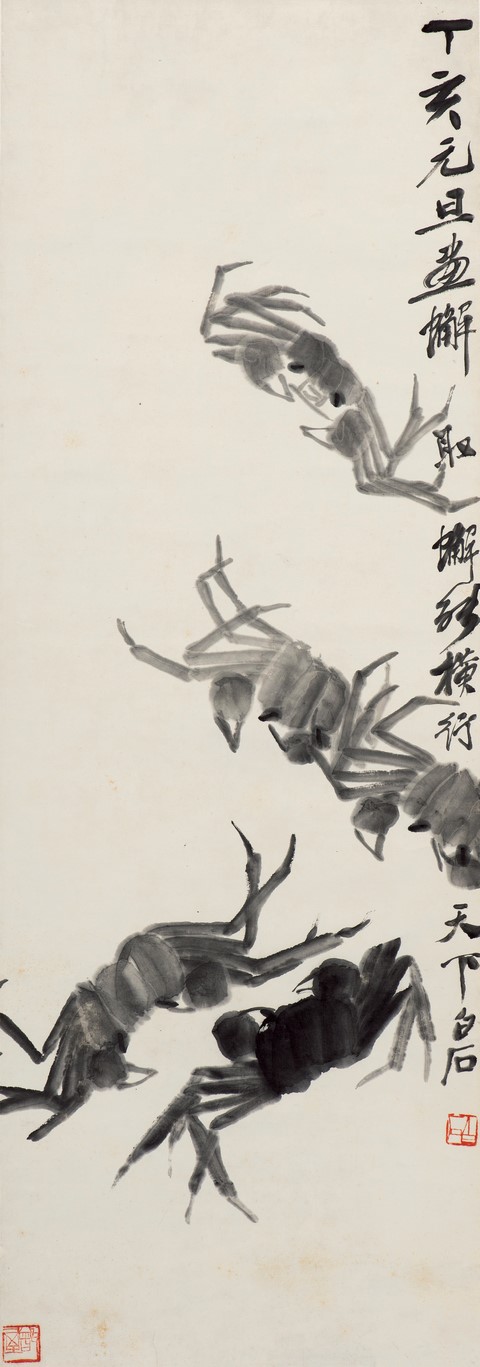 丁亥元旦畫蠏 取蠏能橫行天下 白石